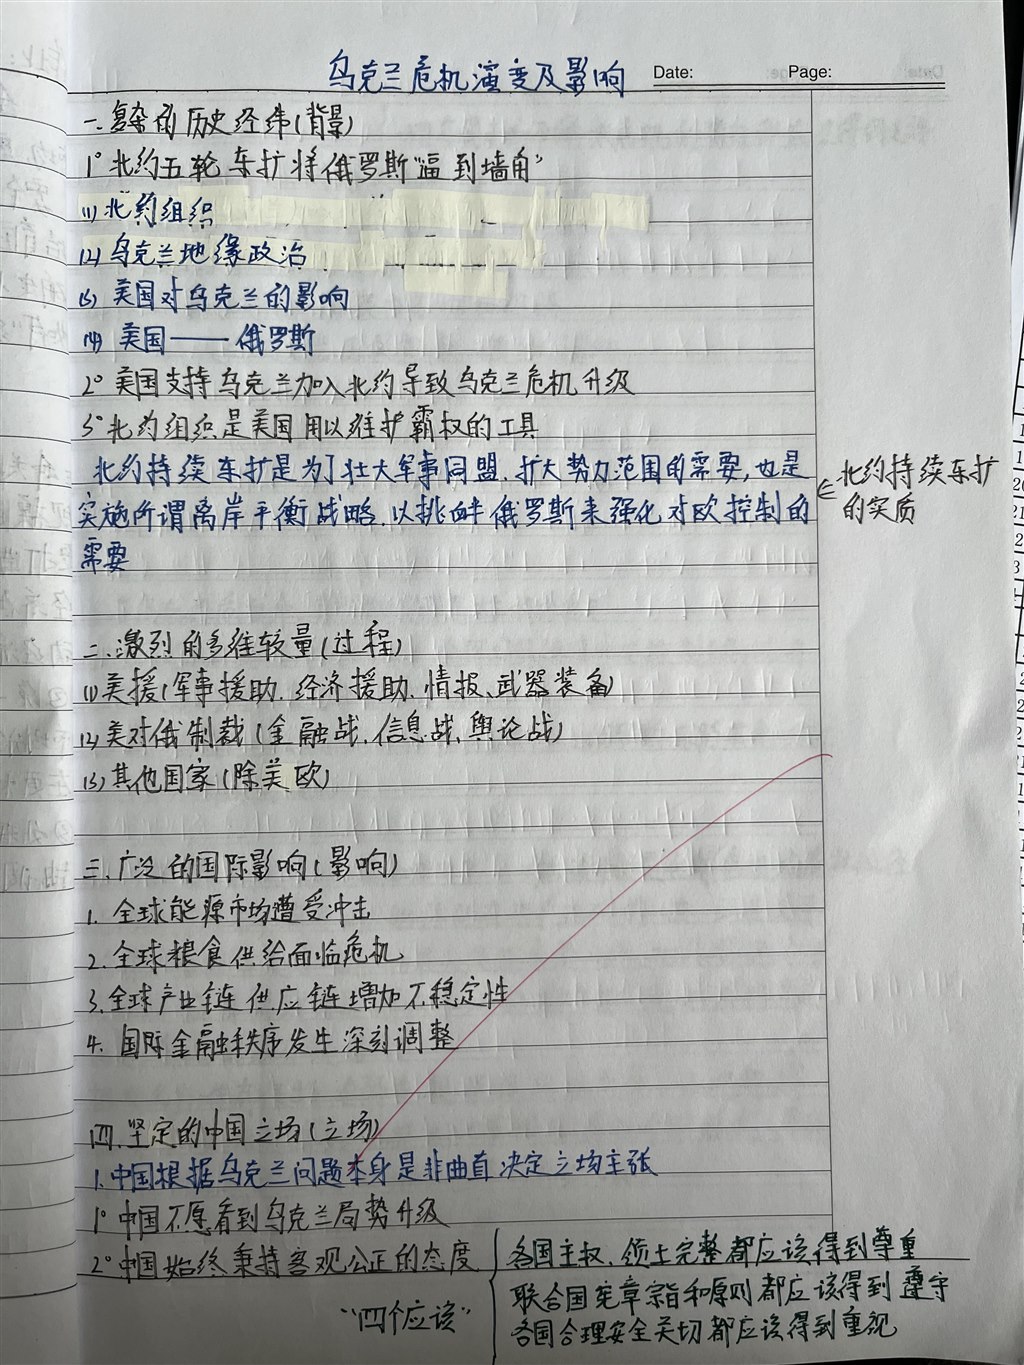 乌克兰危机演变及影响
Date: Page:
一.复杂的历史经纬(背景)
1° 北约五轮东扩将俄罗斯“逼到墙角”
(1) 北约组织
(2) 乌克兰地缘政治
(3) 美国对乌克兰的影响
(4) 美国——俄罗斯
2° 美国支持乌克兰加入北约导致乌克兰危机升级
3° 北约组织是美国用以维护霸权的工具
北约持续东扩是为了壮大军事同盟.扩大势力范围的需要,也是
实施所谓离岸平衡战略.以挑衅俄罗斯来强化对欧控制的
需要
北约持续东扩
的实质
二.激烈的多维较量(过程)
(1) 美援(军事援助.经济援助.情报、武器装备)
(2) 美对俄制裁(金融战.信息战.舆论战)
(3) 其他国家(除美欧)
三.广泛的国际影响(影响)
1. 全球能源市场遭受冲击
2. 全球粮食供给面临危机
3. 全球产业链供应链增加不稳定性
4. 国际金融秩序发生深刻调整
四.坚定的中国立场(立场)
1.中国根据乌克兰问题本身是非曲直决定立场主张
1° 中国不愿看到乌克兰局势升级
2° 中国始终秉持客观公正的态度
“四个应该”
各国主权、领土完整都应该得到尊重
联合国宪章宗旨和原则都应该得到遵守
各国合理安全关切都应该得到重视